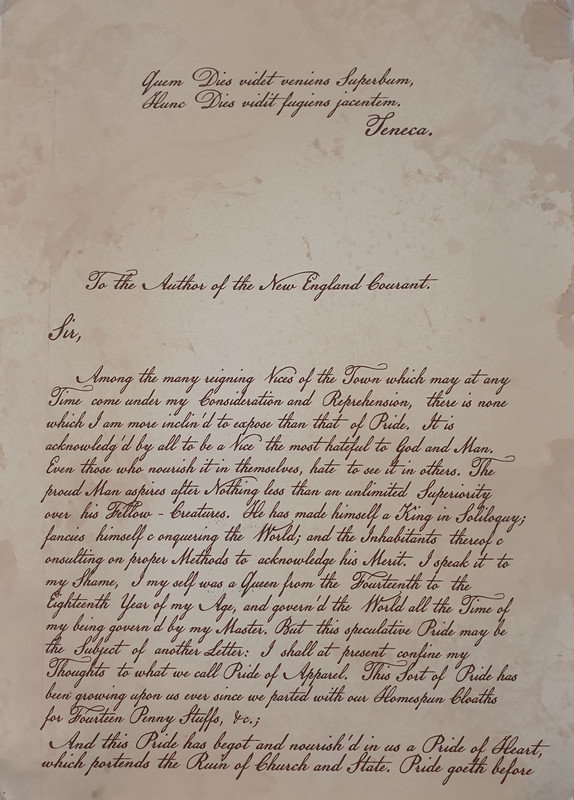 Quem Dies videt veniens Superbum,
Hunc Dies vidit fugiens jacentem.
Seneca.
To the Author of the New England Courant.
Sir,
Among the many reigning Vices of the Town which may at any
Time come under my Consideration and Reprehension, there is none
which I am more inclin'd to expose than that of Pride. It is
acknowledg'd by all to be a Vice the most hateful to God and Man.
Even those who nourish it in themselves, hate to see it in others. The
proud Man aspires after Nothing less than an unlimited Superiority
over his Fellow - Creatures. He has made himself a King in Soliloquy;
fancies himself c onquering the World; and the Inhabitants thereof c
onsulting on proper Methods to acknowledge his Merit. I speak it to
my Shame, I my self was a Queen from the Fourteenth to the
Eighteenth Year of my Age, and govern'd the World all the Time of
my being govern'd by my Master. But this speculative Pride may be
the Subject of another Letter: I shall at present confine my
Thoughts to what we call Pride of Apparel. This Sort of Pride has
been growing upon us ever since we parted with our Homespun Cloaths
for Fourteen Penny Stuffs, &c.;
And this Pride has begot and nourish'd in us a Pride of Heart,
which portends the Ruin of Church and State. Pride goeth before